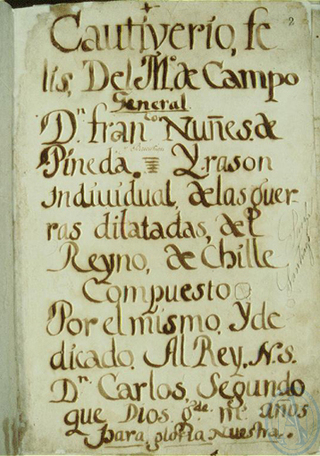 2
Cautiverio, fe
lis, Del M.º de Campo
General
D.n fran.co Nuñes de
Pineda. Y rason
indiuidual, de las guer
ras dilatadas, del
Reyno, de Chille
Compuesto
Por el mismo, y de
dicado. Al Rey. N.s.
D.n Carlos, Segundo
que Dios, g.de m.s años
Para, gloria Nuestra.